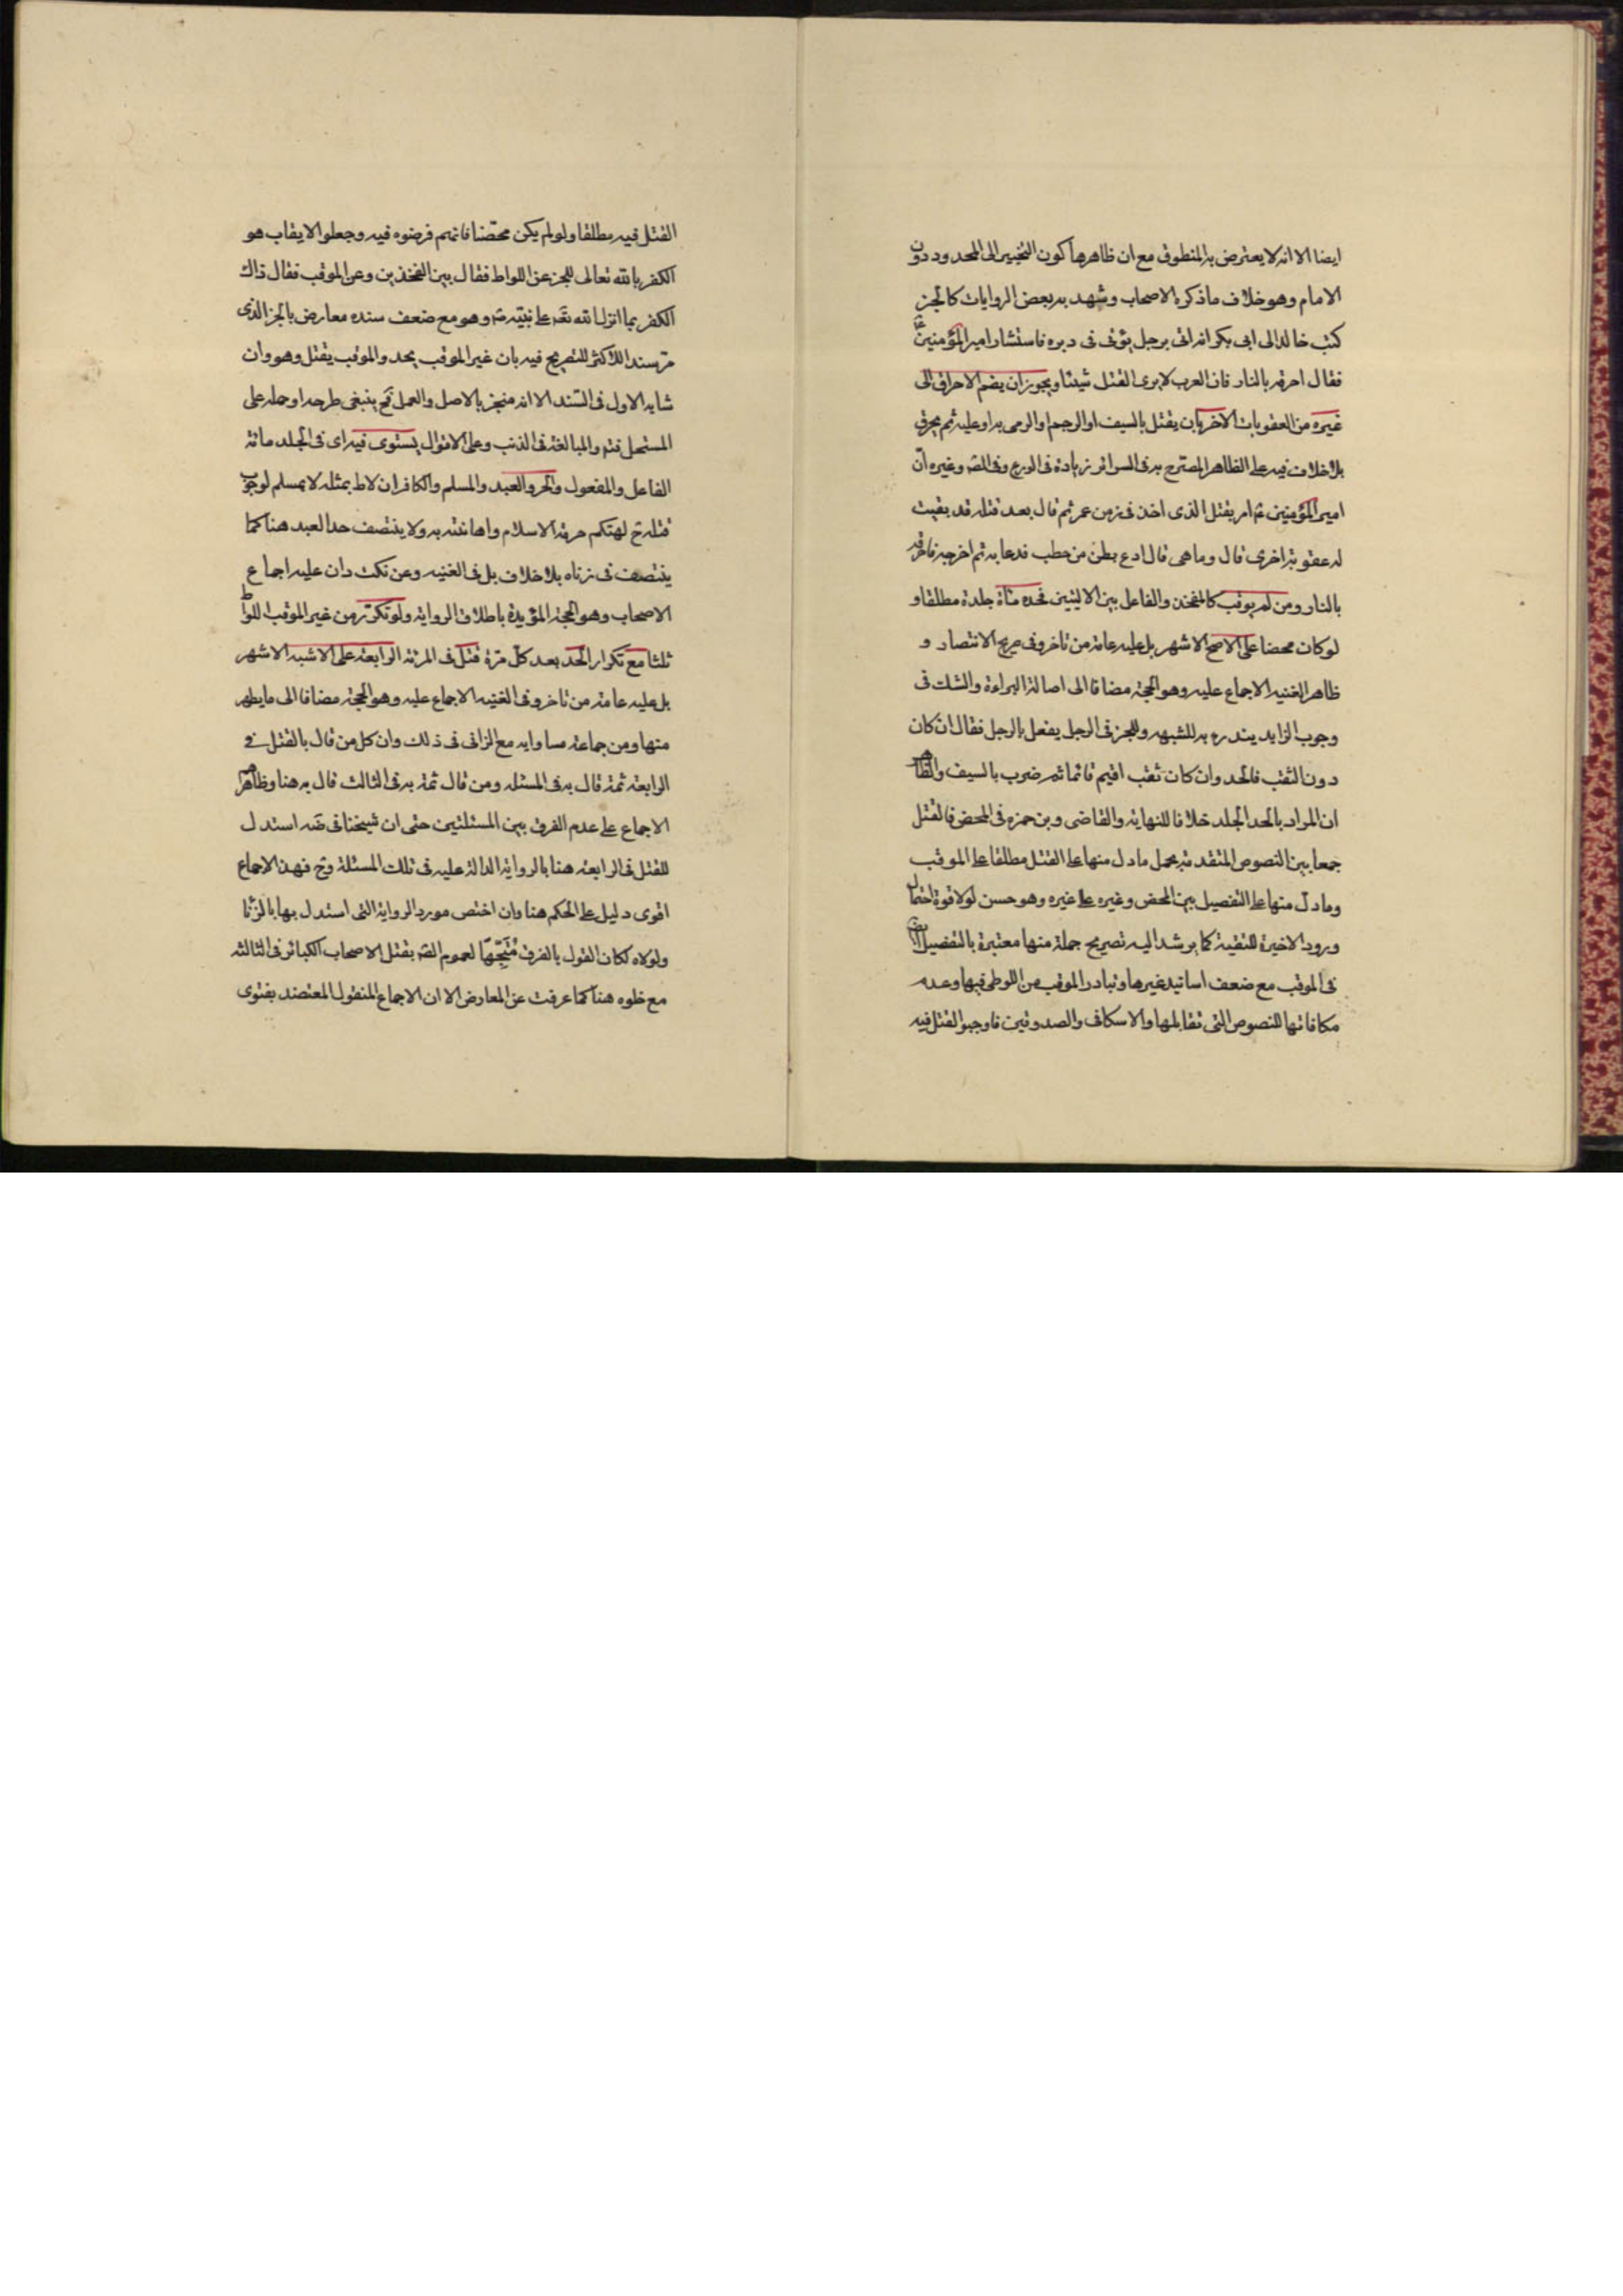 ايضا الا انه لا يعترض به المنطوق مع ان ظاهرها كون التخيير الى المحدود دون
الامام وهو خلاف ما ذكره الاصحاب وشهد به بعض الروايات كالخبر
كتب خالد الى ابى بكر انه اتى برجل يؤتى فى دبره فاستشار امير المؤمنين ع
فقال احرقه بالنار فان العرب لا يرى القتل شيئا ويجوز ان يضم الاحراق الى
غيره من العقوبات الاخر بان يقتل بالسيف او الرجم او الرمى به او عليه ثم يحرق
بلا خلاف فيه على الظاهر المصرح به فى السرائر زيادة فى الورع وفى الصه وغيره ان
امير المؤمنين ع امر بقتل الذى اخذ فى زمن عمر ثم قال بعد قتله قد بقيت
له عقوبة اخرى قال وما هى قال ادع بطن من حطب فدعا به ثم اخرجه فاحرقه
بالنار ومن لم يوقب كالمتفخذ والفاعل بين الاليتين فحده مأة جلدة مطلقا و
لو كان محصنا على الاصح الاشهر بل عليه عامة من تاخر وفى صريح الانتصار و
ظاهر الغنيه الاجماع عليه وهو الحجة مضافا الى اصالة البراءة والشك فى
وجوب الزايد يندره به للشبهه وللخبر فى الرجل يفعل بالرجل فقال ان كان
دون الثقب فالحد وان كان ثقب اقيم قائما ثم ضرب بالسيف والظاهر
ان المراد بالحد الجلد خلافا للنهاية والقاضى وبن حمزه فى المحصن فالقتل
جمعا بين النصوص المتقدمة بحمل ما دل منها على القتل مطلقا على الموقب
وما دل منها على التفصيل بين المحصن وغيره على غيره وهو حسن لولا قوة احتمال
ورود الاخيرة للتقية كما يرشد اليه تصريح جملة منها معتبرة بالتفصيل ايضا
فى الموقب مع ضعف اسانيد غيرها وتبادر الموقب من اللوطى فيها وعدم
مكافاتها للنصوص التى تقابلها والاسكافى والصدوقين فاوجبوا القتل فيه
القتل فيه مطلقا ولو لم يكن محصنا فانهم فرضوه فيه وجعلوا الايقاب هو
الكفر بالله تعالى للخبر عن اللواط فقال بين الفخذين وعن الموقب فقال ذاك
الكفر بما انزل الله تعه على نبيه ص وهو مع ضعف سنده معارض بالخبر الذى
مر سند اللاكثر للتصريح فيه بان غير الموقب يحد والموقب يقتل وهو وان
شابه الاول فى السند الا انه منجبر بالاصل والعمل فح ينبغى طرحه او حمله على
المستحل فته والمبالغة فى الذنب وعلى الاقوال يستوى فيه اى فى الجلد مائة
الفاعل والمفعول والحر والعبد والمسلم والكافر ان لاط بمثله لا بمسلم لوجوب
قتله ح لهتكه حرمة الاسلام واهانته به ولا ينتصف حد العبد هنا كما
ينتصف فى زناه بلا خلاف بل فى الغنيه وعن نكت دان عليه اجماع
الاصحاب وهو الحجة المؤيدة باطلاق الرواية ولو تكرر من غير الموقب اللواط
ثلثا مع تكرار الحد بعد كل مرة قتل فى المرتة الرابعة على الاشبه الاشهر
بل عليه عامة من تاخر وفى الغنيه الاجماع عليه وهو الحجة مضافا الى ما يظهر
منها ومن جماعة مساوايه مع الزانى فى ذلك وان كل من قال بالقتل فى
الرابعة ثمة قال به فى المسئله ومن قال ثمة به فى الثالث قال به هنا وظاهر
الاجماع على عدم الفرق بين المسئلتين حتى ان شيخنا فى ضه استدل
للقتل فى الرابعة هنا بالرواية الدالة عليه فى تلك المسئلة وح فهذا الاجماع
اقوى دليل على الحكم هنا وان اختص مورد الرواية التى استدل بها بالزنا
ولولاه لكان القول بالفرق متجها لعموم الصه بقتل الاصحاب الكبائر فى الثالثه
مع خلوه هنا كما عرفت عن المعارض الا ان الاجماع المنقول المعتضد بفتوى